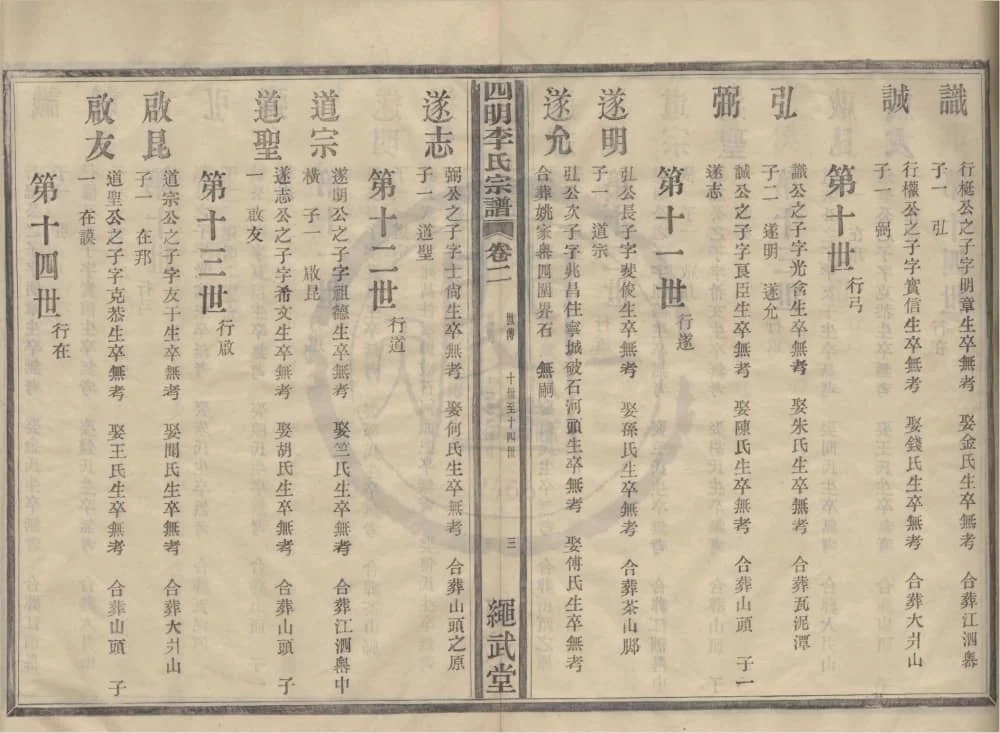 識
行梃公之子字明章生卒無考　娶金氏生卒無考　合葬江泗嶴
子一　弘
誠
行權公之子字實信生卒無考　娶錢氏生卒無考　合葬大爿山
子一　弼
第十世　行弓
弘
識公之子字光含生卒無考　娶朱氏生卒無考　合葬瓦泥潭
子二　遂明　遂允
弼
誠公之子字良臣生卒無考　娶陳氏生卒無考　合葬山頭　子一
遂志
第十一世　行遂
遂明
弘公長子字斐俊生卒無考　娶孫氏生卒無考　合葬茶山腳
子一　道宗
遂允
弘公次子字兆昌住寧城破石河頭生卒無考　娶傅氏生卒無考
合葬姚家嶴四圍界石　無嗣
四明李氏宗譜　卷二　世傳　十世至十四世　三　繩武堂
遂志
弼公之子字士尙生卒無考　娶何氏生卒無考　合葬山頭之原
子一　道聖
第十二世　行道
道宗
遂明公之子字祖德生卒無考　娶竺氏生卒無考　合葬江泗嶴中
橫　子一　啟昆
道聖
遂志公之子字希文生卒無考　娶胡氏生卒無考　合葬山頭　子
一　啟友
第十三世　行啟
啟昆
道宗公之子字友于生卒無考　娶聞氏生卒無考　合葬大爿山
子一　在邦
啟友
道聖公之子字克恭生卒無考　娶王氏生卒無考　合葬山頭　子
一　在謨
第十四世　行在